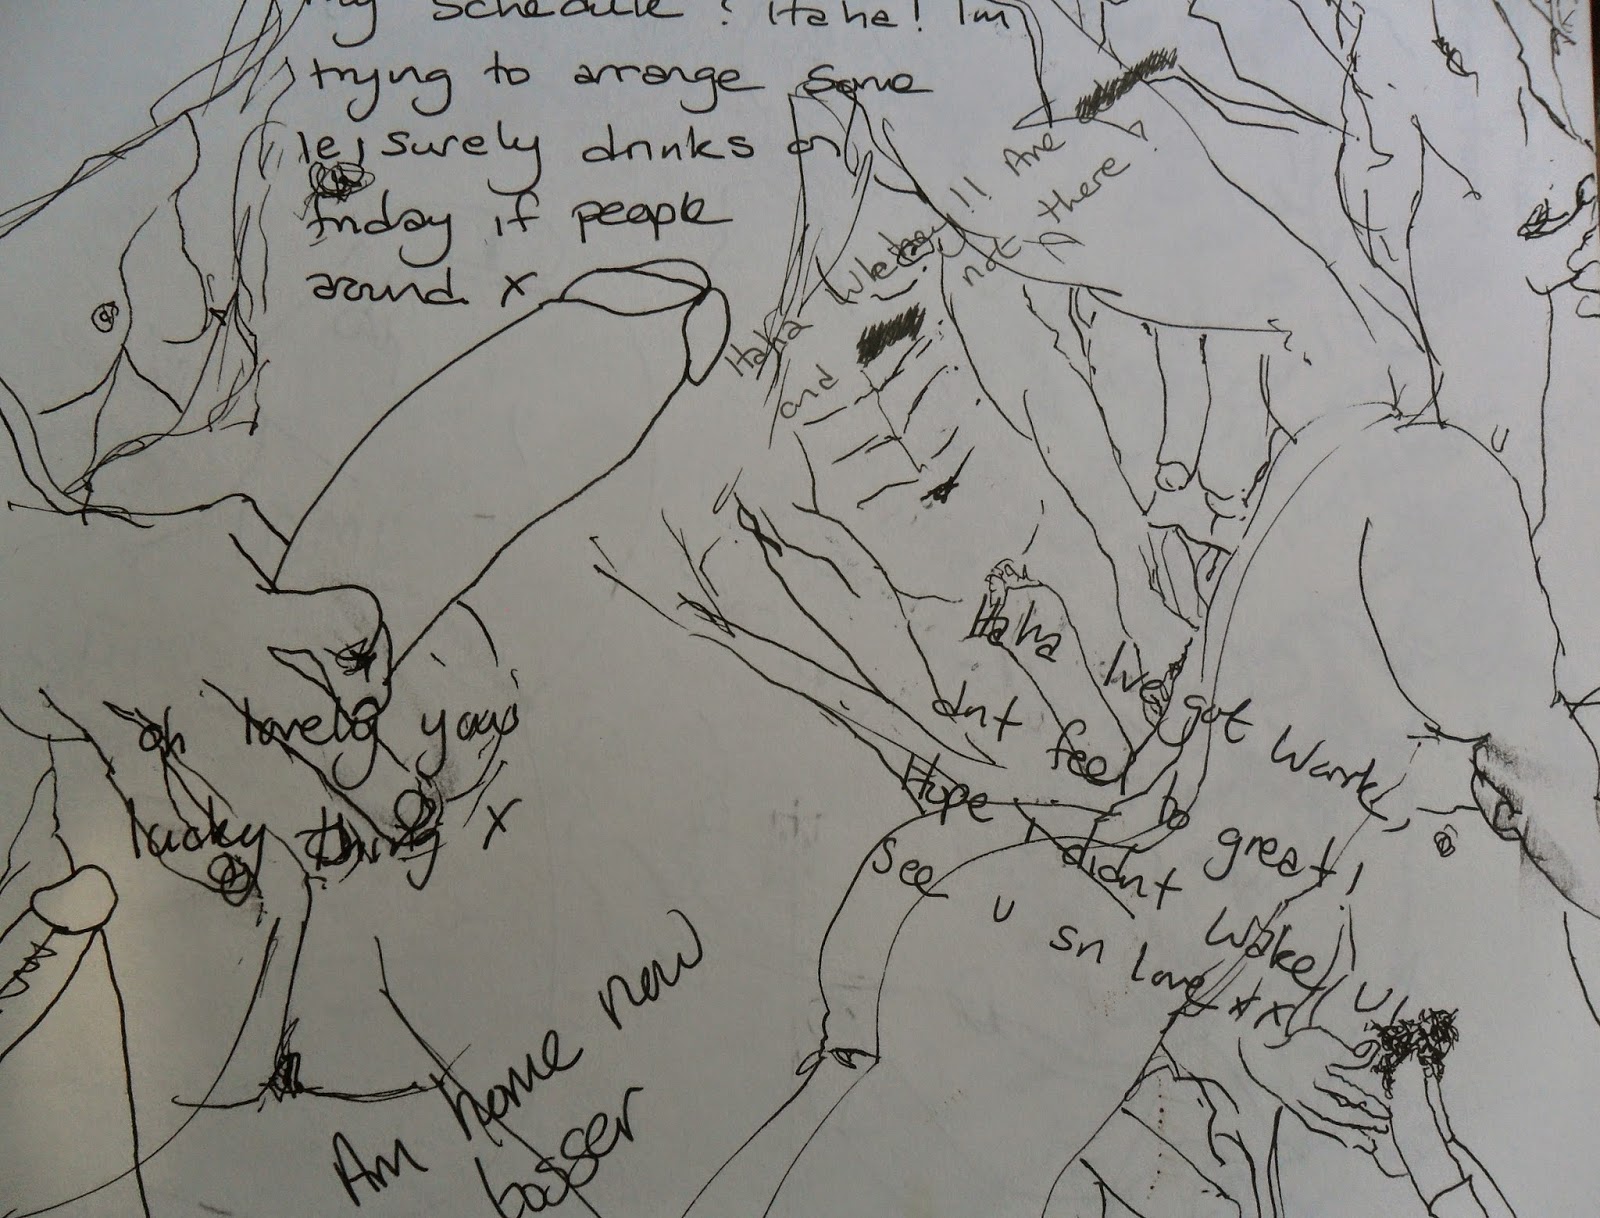 my schedule? Haha! I'm
trying to arrange some
leisurely drinks on
friday if people
around x
Haha
and
!! Are
not there?
Haha I've got work,
dnt feel to great!
Hope I didnt wake U!
See u sn love x x
oh lovely you
lucky thing x
Am home now